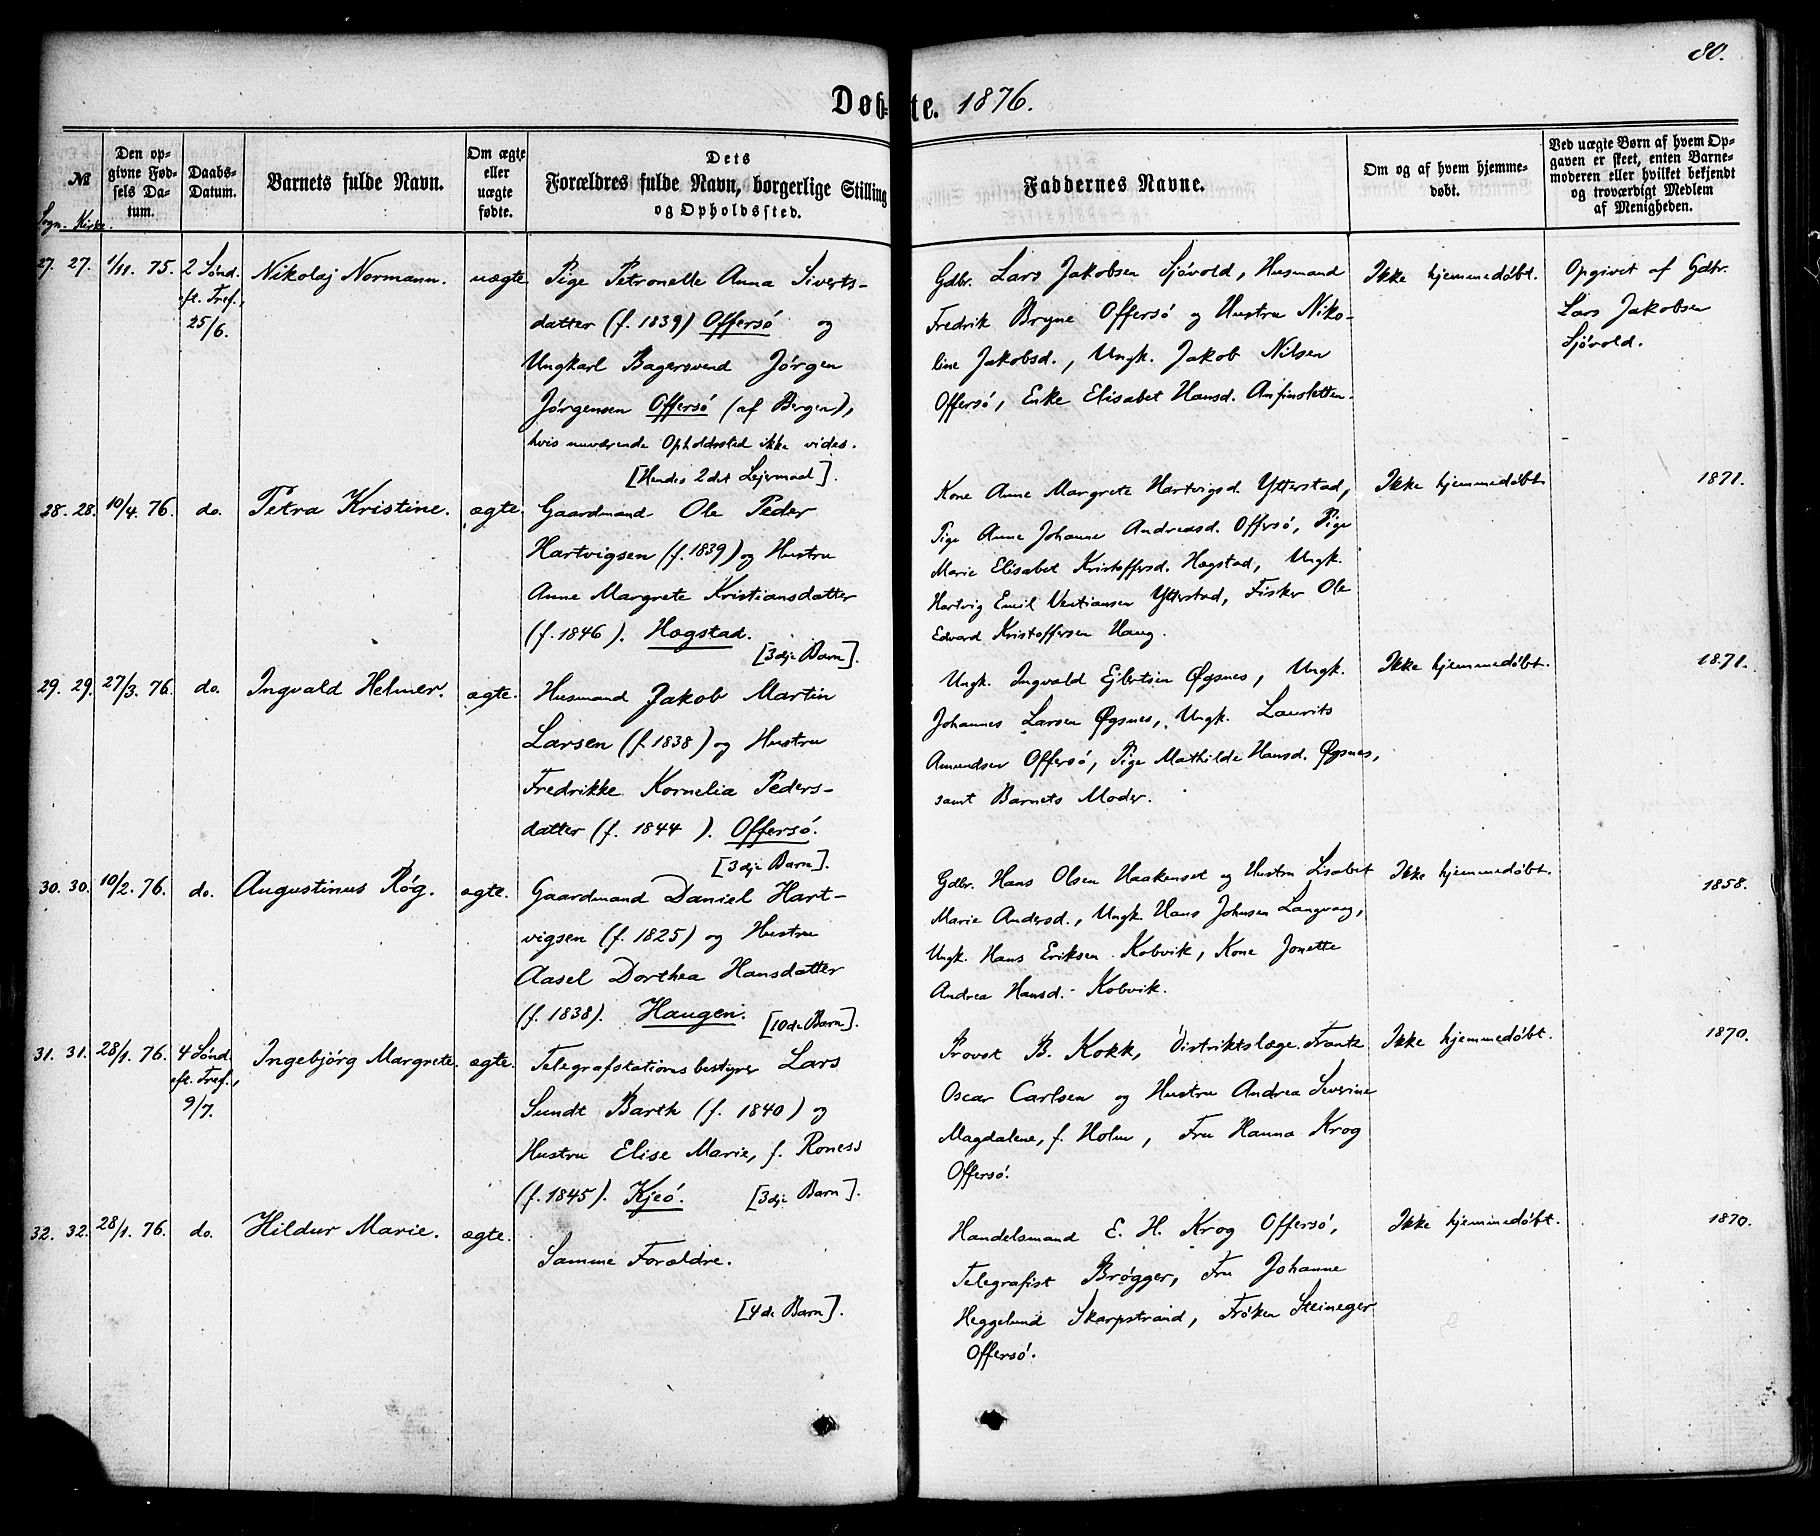 80.
Døb-te. 1876.
№
Sogn. Kirke.
Den op-
givne Fød-
sels Da-
tum.
Daabs-
Datum.
Barnets fulde Navn.
Om ægte
eller
uægte
fødte.
Dets
Forældres fulde Navn, borgerlige Stilling
og Opholdssted.
Faddernes Navne.
Om og af hvem hjemme-
døbt.
Ved uægte Børn af hvem Op-
gaven er skeet, enten Barne-
moderen eller hvilket bekjendt
og troværdigt Medlem
af Menigheden.
27. 27. 1/11. 75. 2 Sønd.
eft. Tref.,
25/6.
Nikolaj Normann. uægte
Pige Petronelle Anna Siverts-
datter (f. 1839) Offersø og
Ungkarl Bagersvend Jörgen
Jörgensen Offersö (af Bergen),
hvis nuværende Opholdssted ikke vides.
[Hendes 2det Lejermaal].
Gdbr. Lars Jakobsen Sjövold, Husmand
Fredrik Bryne Offersö og Hustru Niko-
line Jakobsd., Ungk. Jakob Nilsen
Offersö, Enke Elisabet Hansd. Anfinsletten.
Ikke hjemmedöbt.
Opgivet af Gdbr.
Lars Jakobsen
Sjövold.
28. 28. 10/4. 76. do. Petra Kristine. ægte.
Gaardmand Ole Peder
Hartvigsen (f. 1839) og Hustru
Anne Margrete Kristiansdatter
(f. 1846). Hægstad.
[3dje Barn].
Kone Anne Margrete Hartvigsd. Ytterstad,
Pige Anne Johanne Andreasd. Offersö, Pige
Marie Elisabet Kristoffersd. Hægstad, Ungk.
Hartvig Emil Ytterstad, Fisker Ole
Edvard Kristoffersen Haug.
Ikke hjemmedöbt.
1871.
29. 29. 27/3. 76. do. Ingvald Helmer. ægte.
Husmand Jakob Martin
Larsen (f. 1838) og Hustru
Fredrikke Kornelia Peders-
datter (f. 1844). Offersö.
[3dje Barn].
Ungk. Ingvald Ejlertsen Øgsnes, Ungk.
Johannes Larsen Øgsnes, Ungk. Laurits
Amundsen Offersö, Pige Mathilde Hansd. Øgsnes,
samt Barnets Moder.
Ikke hjemmedöbt.
1871.
30. 30. 10/2. 76. do. Augustinus Røg. ægte.
Gaardmand Daniel Hart-
vigsen (f. 1825) og Hustru
Aasel Dorthea Hansdatter
(f. 1838). Haugen. [10de Barn].
Gdbr. Hans Olsen Haakenset og Hustru Lisabet
Marie Andersd., Ungk. Hans Johnsen Langvang,
Ungk. Hans Eriksen Kobvik, Kone Jonette
Andrea Hansd. Kobvik.
Ikke hjemmedöbt.
1858.
31. 31. 28/1. 76. 4 Sønd.
eft. Tref.,
9/7.
Ingebjörg Margrete. ægte.
Telegrafstationsbestyrer Lars
Sundt Barth (f. 1840) og
Hustru Elise Marie, f. Roness
(f. 1845). Kjeö. [3dje Barn].
Provst B. Kokk, Distriktslæge Frantz
Oscar Carlsen og Hustru Andrea Severine
Magdalene, f. Holm, Fru Hanna Krog
Offersö.
Ikke hjemmedöbt.
1870.
32. 32. 28/1. 76. do. Hildur Marie. ægte.
Samme Forældre.
[4de Barn].
Handelsmand E. H. Krog Offersö,
Telegrafist Brøgger, Fru Johanne
Heggelund Skarpstrand, Fröken Steineger
Offersö.
Ikke hjemmedöbt.
1870.